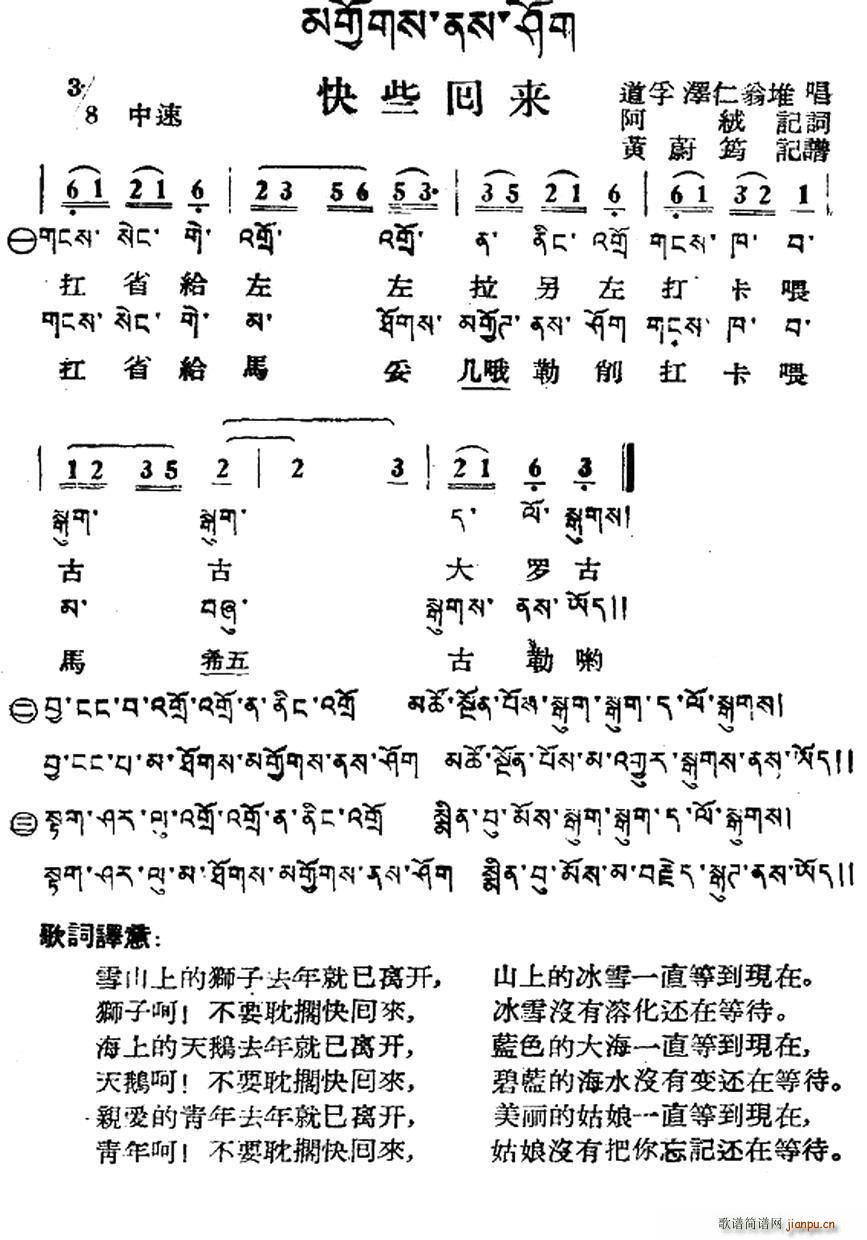 མགྱོགས་ནས་ཤོག
快些回来
3/8 中速
道孚 澤仁翁堆 唱
阿 絨 記詞
黃蔚筠 記譜
6 1 2 1 6 | 2 3 5 6 5 3· | 3 5 2 1 6 | 6 1 3 2 1 |
㊀གངས་ སེང་ གེ་ འགྲོ་ འགྲོ་ ན་ ནིང་ འགྲོ གངས་ ཁ་ བ་
扛省給左 左拉另左打卡喂
གངས་ སེང་ གེ་ མ་ ཐོགས་ མགྱོཊ་ ནས་ ཤོག གངས་ ཁ་ བ་
扛省給馬 妥几哦勒削扛卡喂
1 2 3 5 2 | 2 3 | 2 1 6 3
སྒུག་ སྒུག་ ད་ ལོ་ སྒུགས།
古 古 大 罗 古
མ་ བཞུ་ སྒུགས་ ནས་ ཡོད།།
馬 希五 古 勒 喲
㊁བྱ་ངང་བ་འགྲོ་འགྲོ་ན་ནིང་འགྲོ མཚོ་སྔོན་པོས་སྒུག་སྒུག་ད་ལོ་སྒུགས།
བྱ་ངང་པ་མ་ཐོགས་མགྱོགས་ནས་ཤོག མཚོ་སྔོན་པོས་མ་འགྱུར་སྒུགས་ནས་ཡོད།།
㊂སྟག་ཤར་ལུ་འགྲོ་འགྲོ་ན་ནིང་འགྲོ སྨིན་བུ་མོས་སྒུག་སྒུག་ད་ལོ་སྒུགས།
སྟག་ཤར་ལུ་མ་ཐོགས་མགྱོགས་ནས་ཤོག སྨིན་བུ་མོས་མ་བརྗེད་སྒུཊ་ནས་ཡོད།།
歌詞譯意:
雪山上的獅子去年就已离开, 山上的冰雪一直等到現在。
獅子呵! 不要耽擱快回來, 冰雪沒有溶化还在等待。
海上的天鵝去年就已离开, 藍色的大海一直等到現在,
天鵝呵! 不要耽擱快回來, 碧藍的海水沒有变还在等待。
親愛的青年去年就已离开, 美丽的姑娘一直等到現在,
青年呵! 不要耽擱快回來, 姑娘沒有把你忘記还在等待。
歌谱简谱网 jianpu.cn